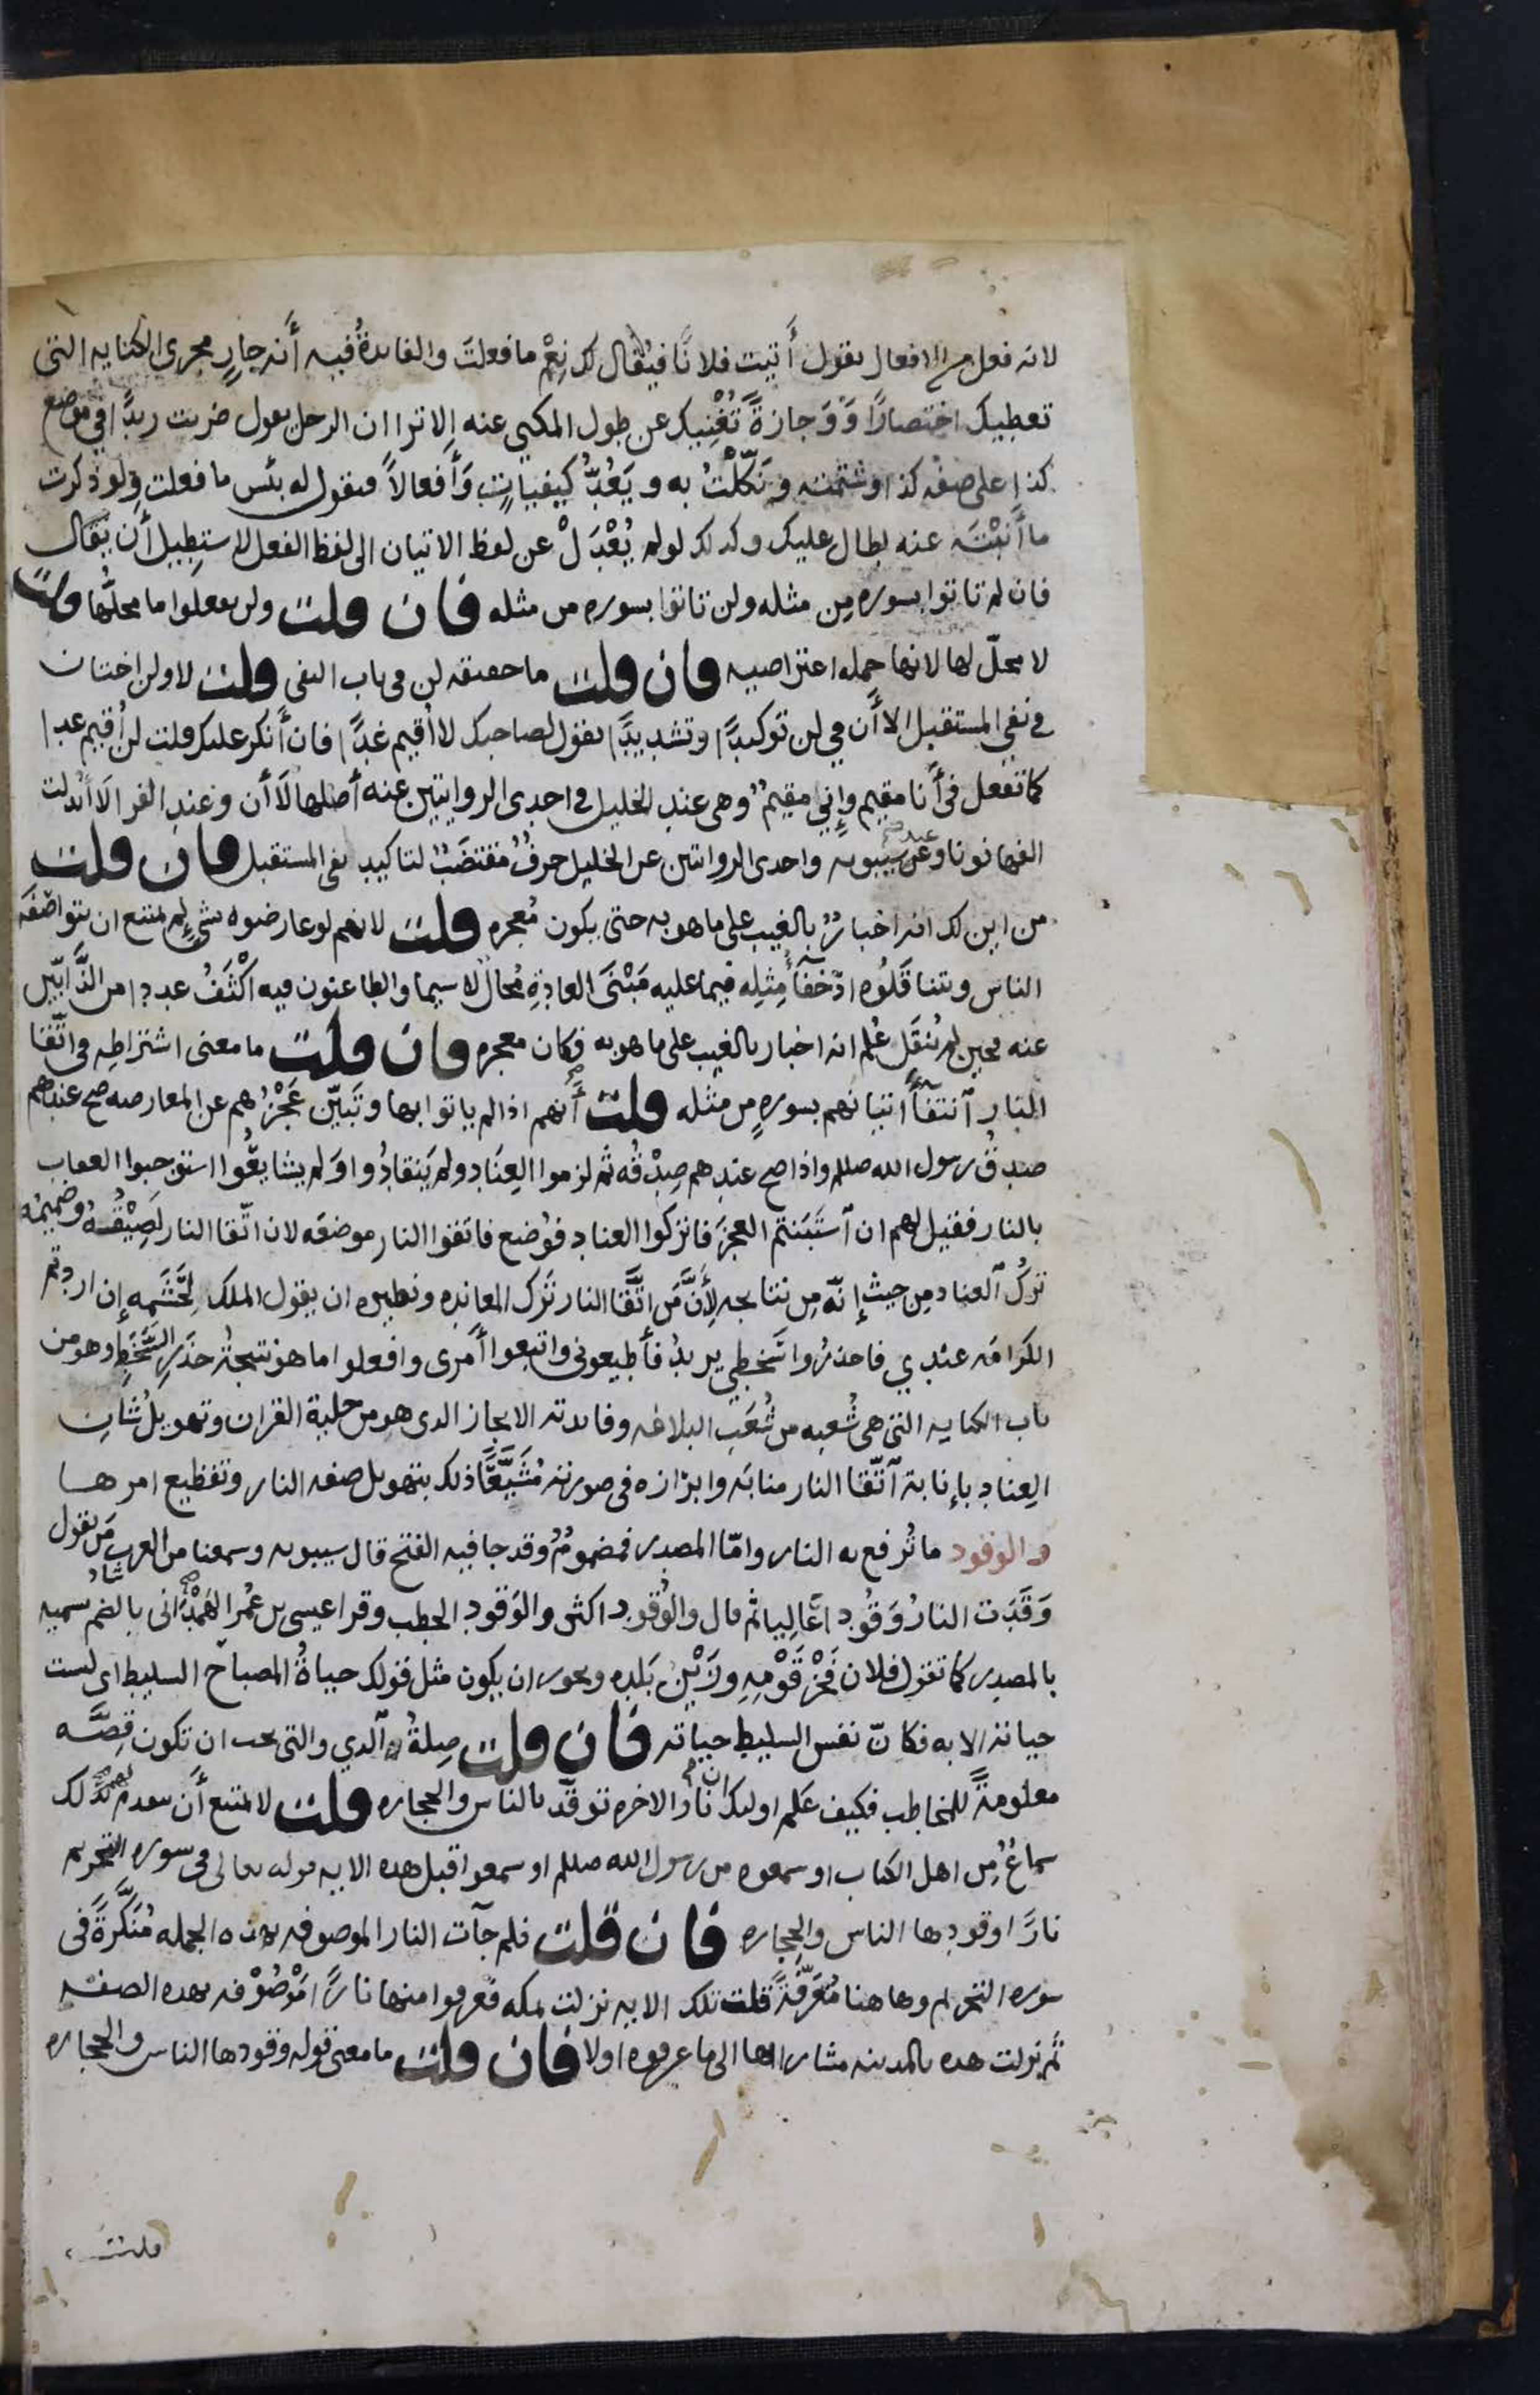 لانه فعل من الافعال تقول أتيت فلانًا فيُقال لك نِعْمَ ما فعلتَ والفايدةُ فيه أنه جارٍ مجرى الكنايه التى
تعطيك اختصارًا وَوَجازةً تُغْنِيك عن طول المكنى عنه الا ترا ان الرجل يقول ضربت زيدًا في موضع
كذا على صفه كذا وشتمته ونَكّلْتُ به ويَعُدُّ كيفياتٍ وَأفعالاً فتقول له بئس ما فعلت ولو ذكرت
ما أنَبْتَه عنه لطال عليك وكذلك لو لم يُعْدَلْ عن لفظ الاتيان الى لفظ الفعل لاستطيل أن يقال
فان لم تاتوا بسوره من مثله ولن تاتوا بسوره من مثله فان قلت ولن تفعلوا ما محلّها قلت
لا محلّ لها لانها جمله اعتراضيه فان قلت ما حقيقه لن فى باب النفى قلت لا ولن اختان
فى نفي المستقبل الا أن في لن توكيدًا وتشديدًا تقول لصاحبك لا أقيم غدًا فان أنكر عليك قلت لن أقيم غدا
كما تفعل فى أنا مقيم وإني مقيمٌ وهى عند الخليل فى احدى الروايتين عنه أصلها لا أن وعند الفرا لا أبدلت
الفها نونا وعند سيبويه واحدى الروايتين عن الخليل حرفٌ مقتضَبٌ لتاكيد نفى المستقبل فان قلت
من اين لك انه اخبارٌ بالغيب على ما هو به حتى يكون مُعجزه قلت لانهم لو عارضوه بشىءٍ لم يمتنع ان يتواصَفَه
الناس ويتناقَلُوه اذ خَفَأُ مِثلِه فيما عليه مَبْنَى العادةِ مُحالٌ لا سيما والطاعنون فيه اكْثَفُ عددا من الذَّابّين
عنه فحين لم يُنقَل عُلم انه اخبار بالغيب على ما هو به فكان معجزه فان قلت ما معنى اشتراطِه فى اتّقا
النار انتفأَ اتيانهم بسورهٍ من مثله قلت أنهم اذا لم ياتوا بها وتَبيّن عَجْزُهم عن المعارضه صح عندهم
صدقُ رسول الله صللم واذا صح عندهم صِدْقُه ثم لزموا العِنَاد ولم يَنقادُوا وَلم يشايعُوا استوجبوا العقاب
بالنار فقيل لهم ان اسْتَبَنتم العجزَ فاتركوا العناد فوُضع فاتقوا النار موضعَه لان اتّقا النار لَصِيْقُهُ وضميمُه
تركُ العناد مِن حيث إنّه مِن نتايجه لِأَنَّ مَن اتَّقا النار تَرَك المعانده ونظيره ان يقول الملك لِحَشَمه إن اردتم
الكرامَه عندي فاحذرُوا سَخطِي يريدُ فأطيعونى واتبعوا أمرى وافعلوا ما هو نتيجةُ حذَرِ السَّخَطِ وهو من
باب الكنايه التى هى شُعبه من شُعَبِ البلاغه وفايدته الايجاز الدى هو من حلية القران وتهويل شان
العِناد بإنابة اتّقا النار منابَه وابرازه فى صورته مُشَيَّعًا ذلك بتهويل صفه النار وتفظيع امرها
والوقود ما تُرفع به النار وامّا المصدر فمضمومٌ وقد جا فيه الفتح قال سيبويه وسمعنا من العرب مَن يقول
وَقَدَت النارُ وَقُودا عَالِيا ثم قال والوُقود اكثر والوَقود الحطب وقرا عيسى بن عُمر الهَمْدَانى بالضم تسميه
بالمصدر كما تقول فلان فَخْرُ قَوْمِهِ وزَيْنُ بَلَدِه ويجوز ان يكون مثل قولك حياةُ المصباح السليط اى ليست
حياته الا به فكانّ نفس السليط حياته فان قلت صِلةُ الذي والتى يجب ان تكون قِصَّه
معلومةً للمخاطب فكيف عَلم اوليك ان نار الاخره توقَد بالناس والحجاره قلت لا يمتنع أن يتقدم لهم بذلك
سماعٌ من اهل الكتاب او سمعوه من رسول الله صللم او سمعوا قبل هذه الايه قوله تعالى فى سوره التحريم
نارًا وقودها الناس والحجاره فان قلت فلم جآت النار الموصوفه بهذه الجمله مُنَكَّرةً فى
سوره التحريم وها هنا مُعَرّفةً قلت تلك الايه نزلت بمكه فعرفوا منها نارًا مَوْصُوفه بهذه الصفه
ثم نزلت هذه بالمدينه مشارا بها الى ما عرفوه اولا فان قلت ما معنى قوله وقودها الناس والحجاره
قلت